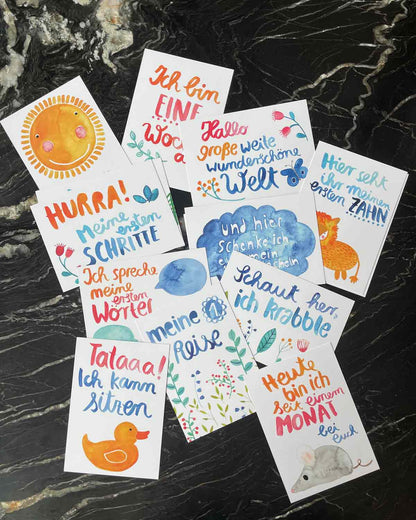 Ich bin
EINE
Woch
a
Hallo
große weite
wunderschöne
Welt
Hier seht
ihr meinen
ersten ZAHN
HURRA!
Meine
ersten
SCHRITTE
und hier
schenke ich
mein
Ich spreche
meine
ersten
Wörter
meine 1.
Reise
Schaut her,
ich krabble
Tataaa!
Ich kann
sitzen
Heute
bin ich
seit einem
MONAT
bei
euch